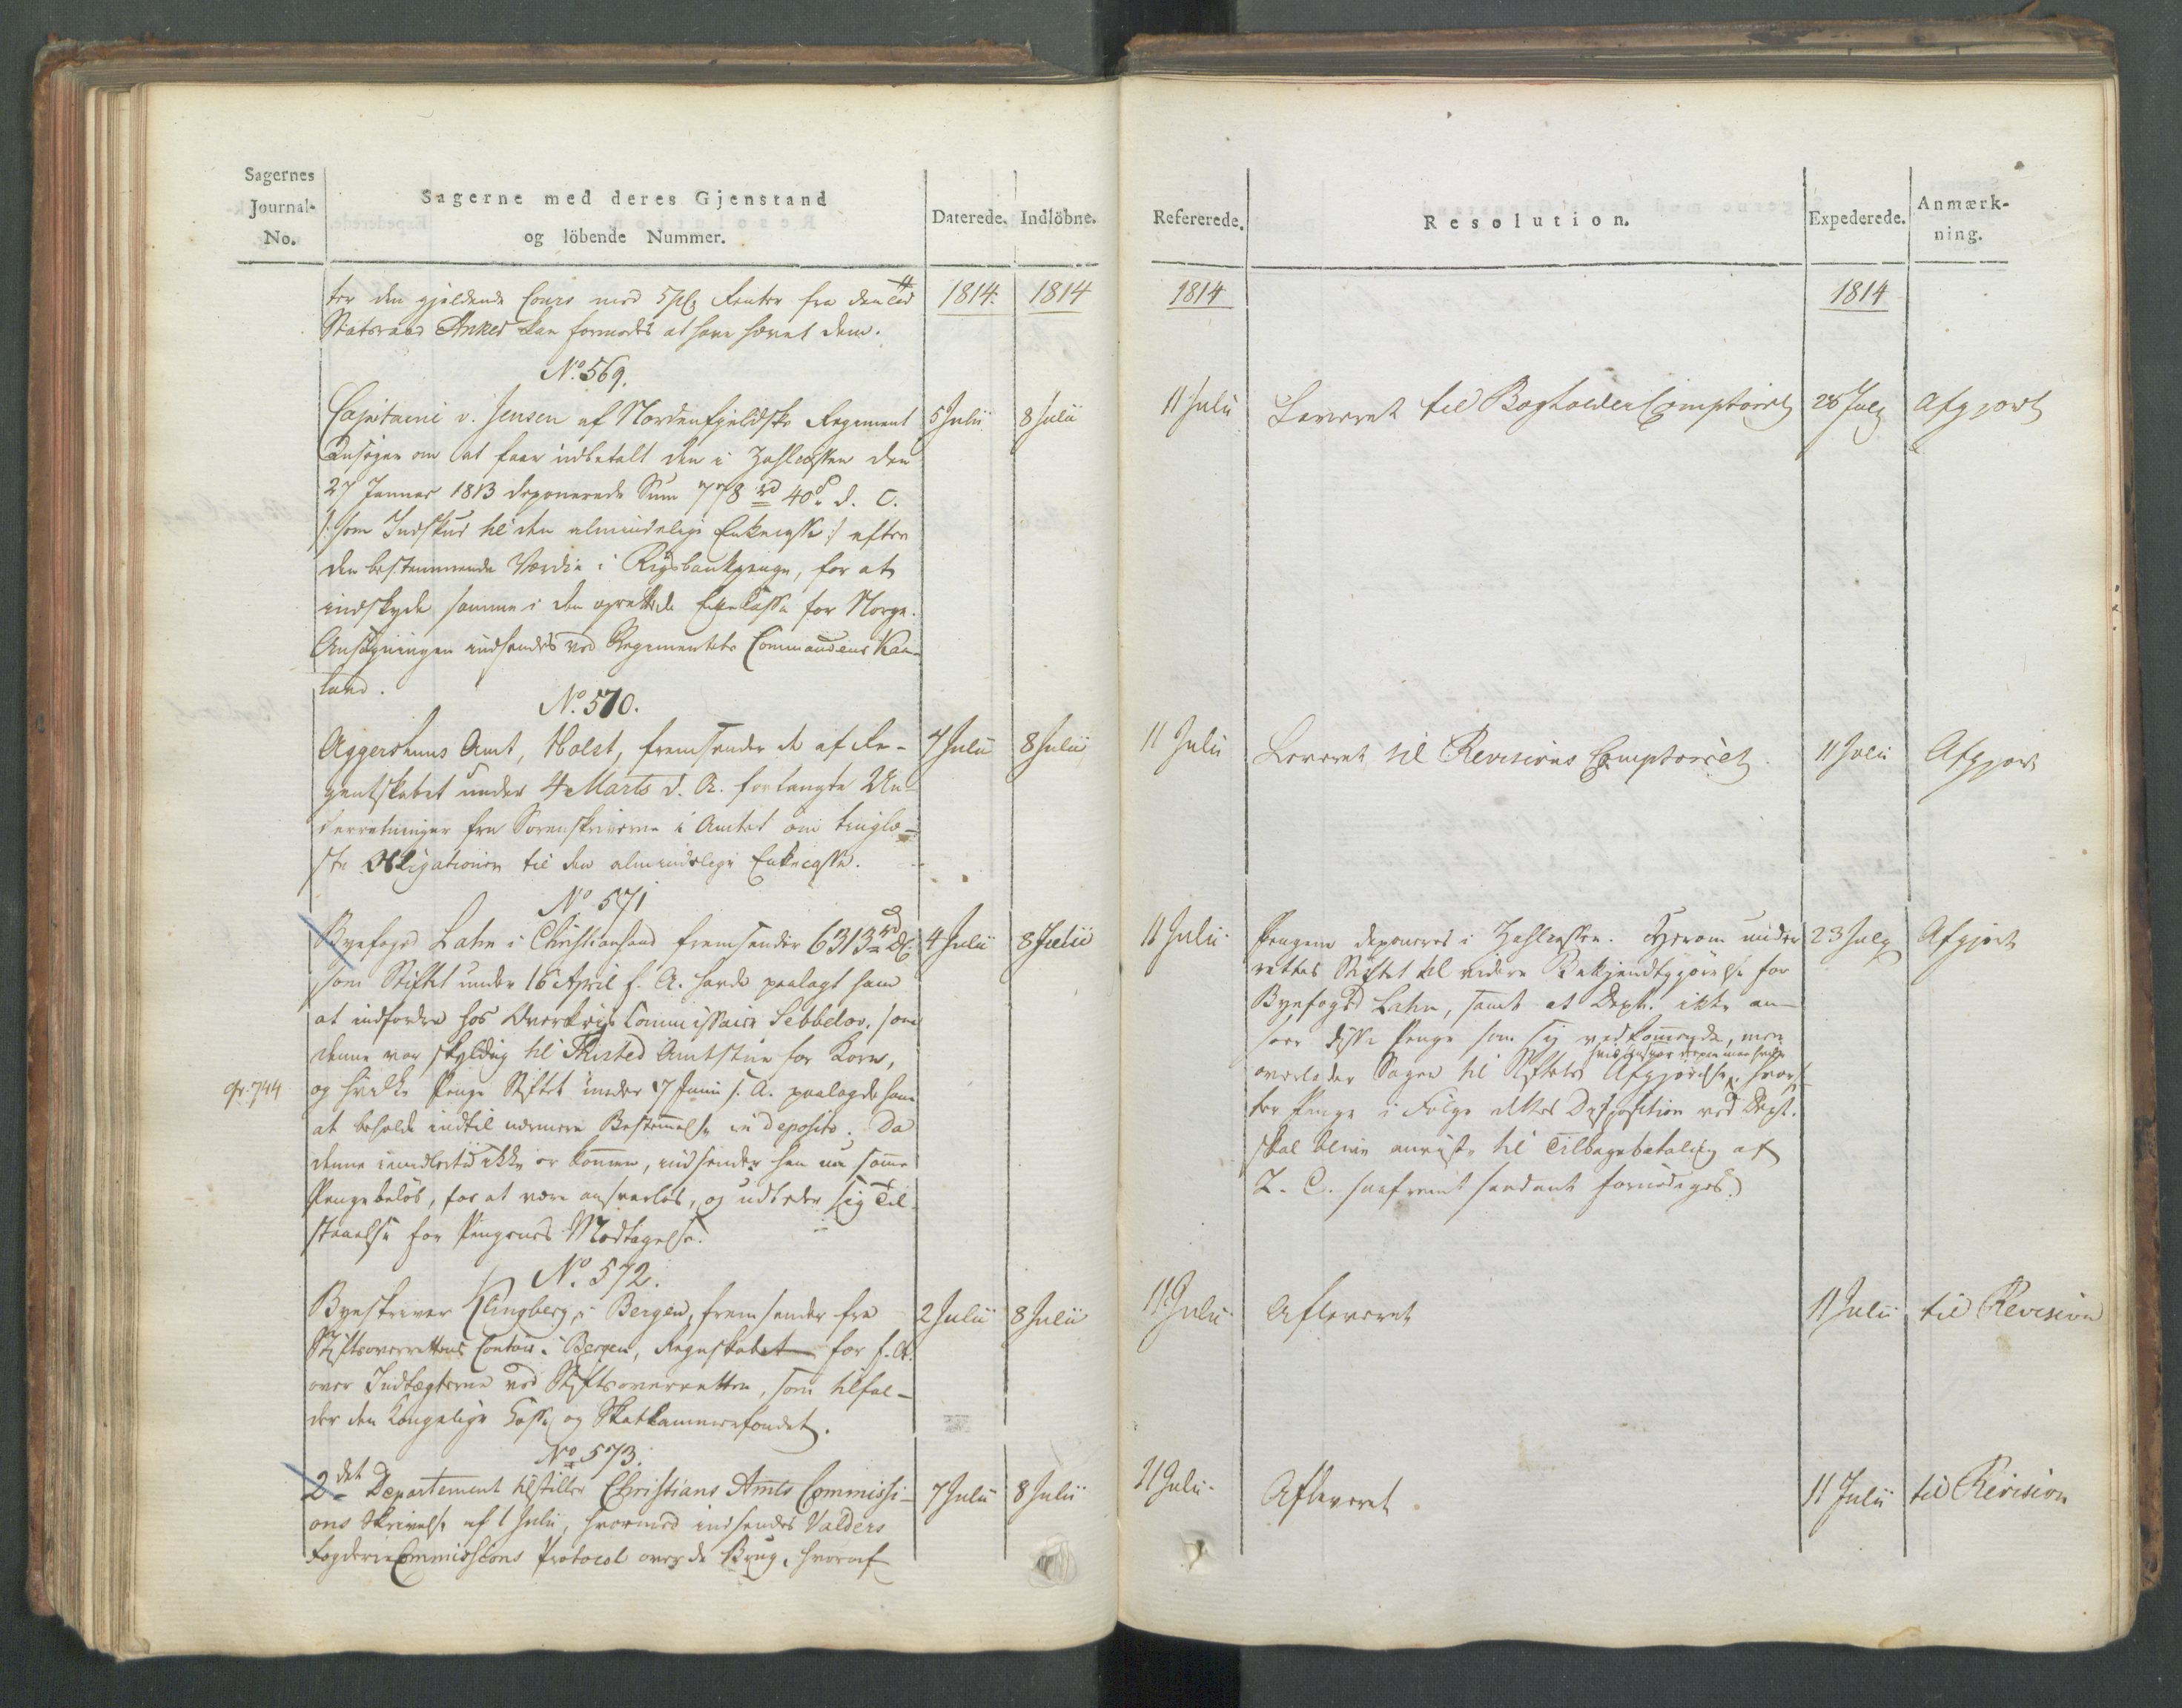 Sagernes
Journal-
No.
Sagerne med deres Gjenstand
og löbende Nummer.
Daterede.
Indlöbne.
ter den gjeldende Cours med 5 pCt Renter fra den Tid
Statsraad Anker kan formodes at have hævet dem.
1814.
1814
No. 569.
Capitaine v. Jensen af Nordenfjeldske Regiment
Ansøger om at faae udbetalt den i Zahlcassen den
27 Januar 1813 deponerede Sum 778 rd 40 s. d. C.
/: som Indskud til den almindelige Enkecasse :/ efter
den bestemmende Værdie i Rigsbankpenge, for at
indskyde samme i den oprettede Enkecasse for Norge.
Ansøgningen indsendes ved Regimentets Commandeur Kaa-
lund.
5 Julii
8 Julii
No. 570.
Aggershuus Amt, Holst, fremsender de af Re-
gentskabet under 4 Marts d. A. forlangte Un-
derretninger fra Sorenskriverne i Amtet om tinglæ-
ste Obligationer til den almindelige Enkecasse.
7 Julii
8 Julii
No 571
Byefoged Lahn i Christiansand fremsender 6313 rd
som Stiftet under 16 April f. A. havde paalagt ham
at indfordre hos Overkrigs Commissair Sebbelov, som
denne var skyldig til Thisted Amtstue for Korn,
og hvilke Penge Stiftet under 17 Junii f. A. paalagde ham
at beholde indtil nærmere Bestemmelse in deposito. Da
denne imidlertid ikke er kommen, indsender han nu samme
Pengebeløb, for at være ansvarløs, og udbeder sig Til-
staaelse for Pengenes Modtagelse.
4 Julii
8 Julii
cfr. 744
No. 572.
Byeskriver Klingberg i Bergen, fremsender fra
Stiftsoverrettens Contoir i Bergen, Regnskabet for f. A.
over Indtægterne ved Stiftsoverretten, som tilfal-
der den Kongelige Casse og Skatkammerfondet.
2 Julii
8 Julii
No 573.
2det Departement tilstiller Christians Amts Commissi-
ons Skrivelse af 1 Julii, hvormed indsendes Valders
Fogderie Commissions Protocol over de Brug, hvoraf
7 Julii
8 Julii
Refererede.
Resolution.
Expederede.
Anmærk-
ning.
1814
1814
11 Julii
Leveret til Bogholder Comptoiret
28 July
Afgjort
11 Julii
Leveret til Revisions Comptoiret.
11 Julii
Afgjort
11 Julii
Pengene deponeres i Zahlcassen. Herom under-
rettes Stiftet til videre Bekjendtgjørelse for
Byefoged Lahn, samt at Dept. ikke an-
seer disse Penge som sig vedkommende, men
overlader Sagen til Stiftets Afgjørelse, hvoref-
ter Penge i Følge dettes Disposition ved Dept.
skal blive anviste til Tilbagebetaling af
Z. C. saafremt saadant forlanges.
23 July
Afgjort
11 Julii
Afleveret
11 Julii
til Revision
11 Julii
Afleveret.
11 Julii
til Revision